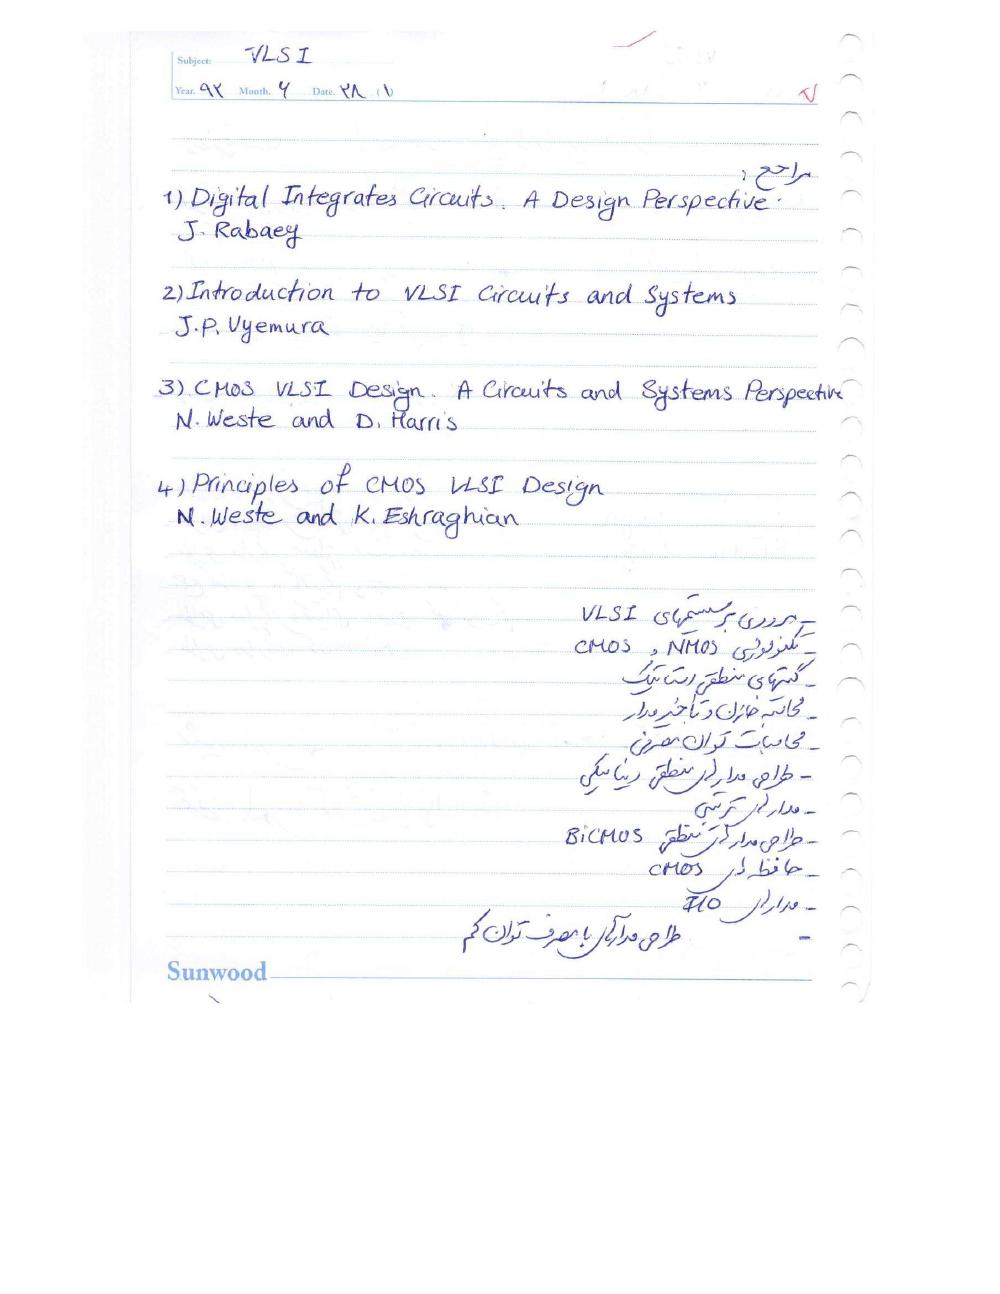 Subject: VLSI
Year. ۹۲ Month. ۶ Date. ۲۸ (۱)
مراجع:
1) Digital Integrates Circuits. A Design Perspective.
J. Rabaey
2) Introduction to VLSI Circuits and Systems
J.P. Uyemura
3) CMOS VLSI Design. A Circuits and Systems Perspective
N. Weste and D. Harris
4) Principles of CMOS VLSI Design
N. Weste and K. Eshraghian
- مروری بر سیستمهای VLSI
- تکنولوژی NMOS و CMOS
- گیتهای منطقی استاتیک
- محاسبه خازن و تأخیر مدار
- محاسبات توان مصرفی
- طراحی مدارهای منطقی دینامیکی
- مدارهای ترتیبی
- طراحی مدارهای منطقی BiCMOS
- حافظه های CMOS
- مدارهای I/O
- طراحی مدارهای با مصرف توان کم
Sunwood